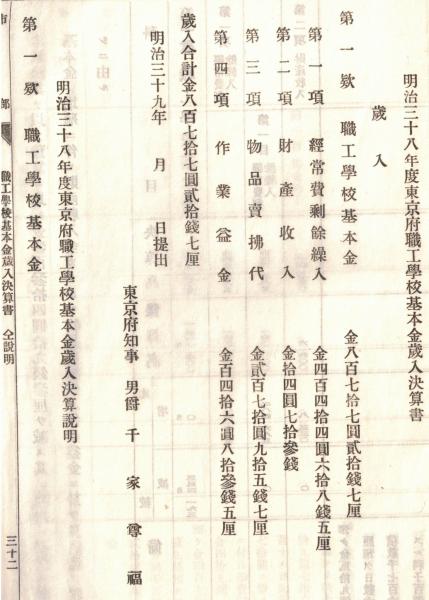 明治三十八年度東京府職工學校基本金歲入決算書
歲入
第一欵 職工學校基本金 金八百七拾七圓貳拾錢七厘
第一項 經常費剩餘繰入 金四百四拾四圓六拾八錢五厘
第二項 財產收入 金拾四圓七拾參錢
第三項 物品賣拂代 金貳百七拾圓九拾五錢七厘
第四項 作業益金 金百四拾六圓八拾參錢五厘
歲入合計金八百七拾七圓貳拾錢七厘
明治三十九年 月 日提出
東京府知事 男爵 千家尊福
明治三十八年度東京府職工學校基本金歲入決算說明
第一欵 職工學校基本金
市部 職工學校基本金歲入決算書 仝說明 三十二